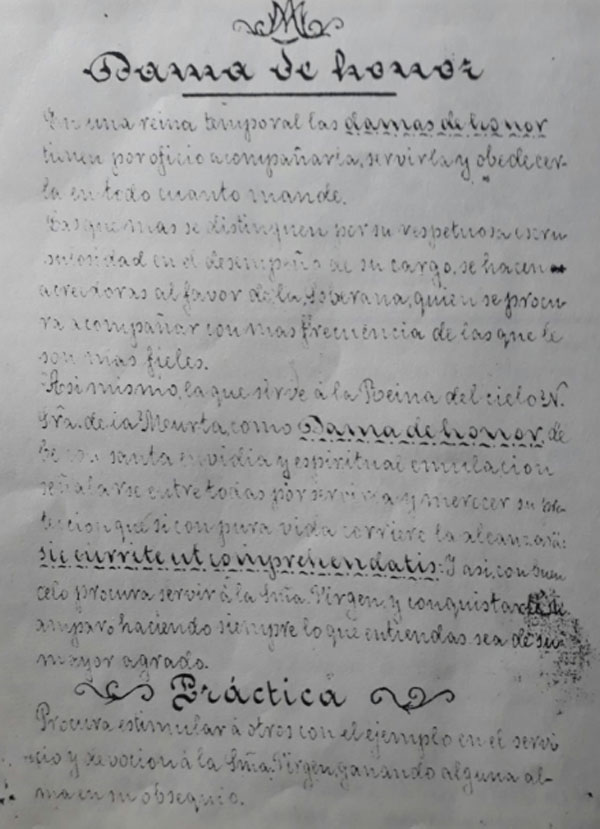 Dama de honor
En una reina temporal las damas de honor
tienen por oficio acompañarla, servirla y obedecer-
la en todo cuanto mande.
Las que mas se distinguen por su respetuosa escru-
pulosidad en el desempeño de su cargo, se hacen
acreedoras al favor de la Soberana, quien se procu-
ra acompañar con mas frecuencia de las que le
son mas fieles.
Asi mismo, la que sirve á la Reina del cielo N.
Sra. de la Meurta, como Dama de honor, de
be con santa envidia y espiritual emulacion
señalarse entre todas por servirla y merecer su pro-
teccion que si con pura vida corriere la alcanzará:
sic currite ut comprehendatis: Y asi, con buen
celo procura servir á la Sma. Virgen, y conquistar
amparo haciendo siempre lo que entiendas sea de su
mayor agrado.
Práctica
Procura estimular á otros con el ejemplo en el servi
cio y devocion á la Sma. Virgen, ganando alguna al-
ma en su obsequio.